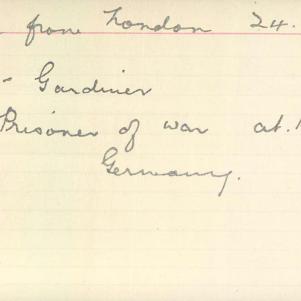 from London 24.
- Gardiner
Prisoner of war at
Germany.